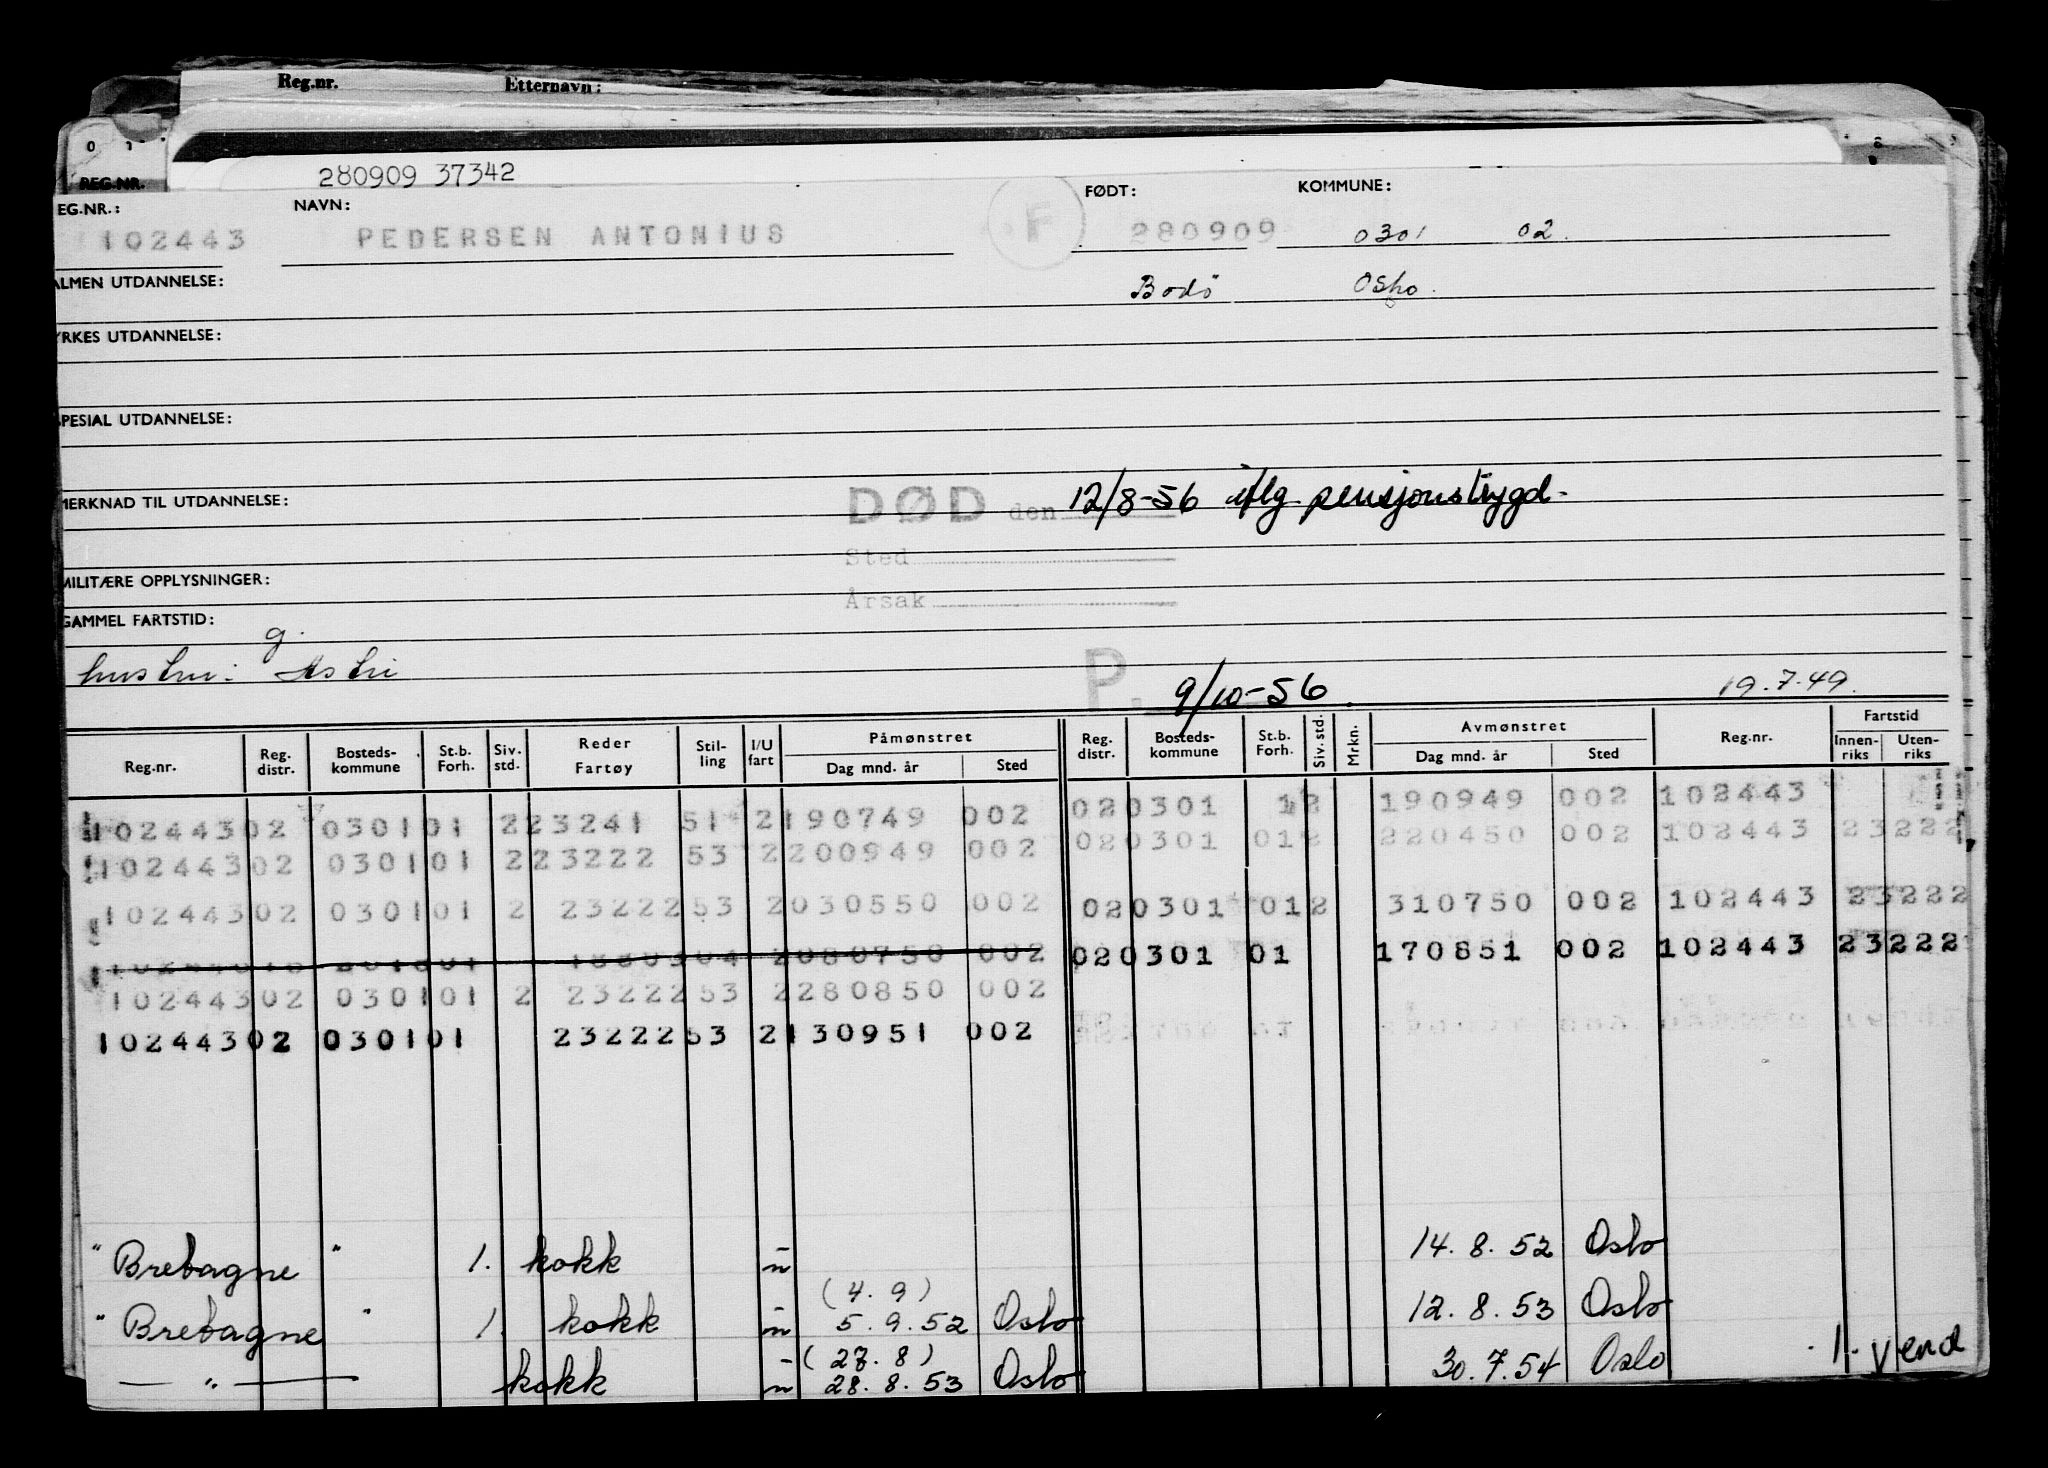 Reg.nr. Etternavn:
0 1
REG.NR.
280909 37342
EG.NR.: NAVN: FØDT: KOMMUNE:
102443 PEDERSEN ANTONIUS F 280909 0301 02.
ALMEN UTDANNELSE: Bodö Oslo.
YRKES UTDANNELSE:
SPESIAL UTDANNELSE:
MERKNAD TIL UTDANNELSE: DØD den 12/8-56 iflg. pensjonstrygd.
Sted
MILITÆRE OPPLYSNINGER:
Årsak
GAMMEL FARTSTID:
g.
hustru: Astri P. 9/10-56. 19.7.49.
Reg.nr. Reg. distr. Bosteds-kommune St.b. Forh. Siv. std. Reder Fartøy Stil-ling I/U fart Påmønstret Dag mnd. år Sted Reg. distr. Bosteds-kommune St.b. Forh. Siv. std. Mrkn. Avmønstret Dag mnd. år Sted Reg.nr. Fartstid Innen-riks Uten-riks
102443 02 0301 01 2 23241 51 2 190749 002 02 0301 12 190949 002 102443
102443 02 0301 01 2 23222 53 2 200949 002 02 0301 01 2 220450 002 102443 23222
102443 02 0301 01 2 23222 53 2 030550 002 02 0301 01 2 310750 002 102443 23222
2 080750 002 02 0301 01 170851 002 102443 23222
102443 02 0301 01 2 23222 53 2 280850 002
102443 02 0301 01 23222 53 2 130951 002
" Bretagne " 1. kokk 14.8.52 Oslo
(4.9)
" Bretagne " 1. kokk 5.9.52 Oslo 12.8.53 Oslo
(27.8)
— " — kokk 28.8.53 Oslo 30.7.54 Oslo 1. Vend